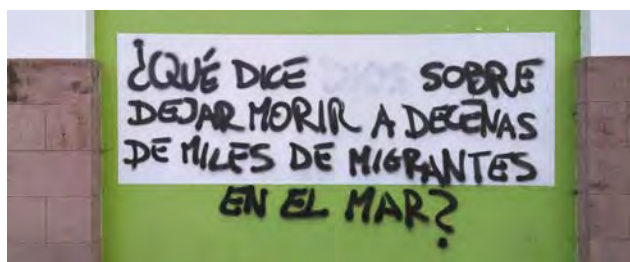 ¿QUÉ DICE SOBRE
DEJAR MORIR A DECENAS
DE MILES DE MIGRANTES
EN EL MAR?